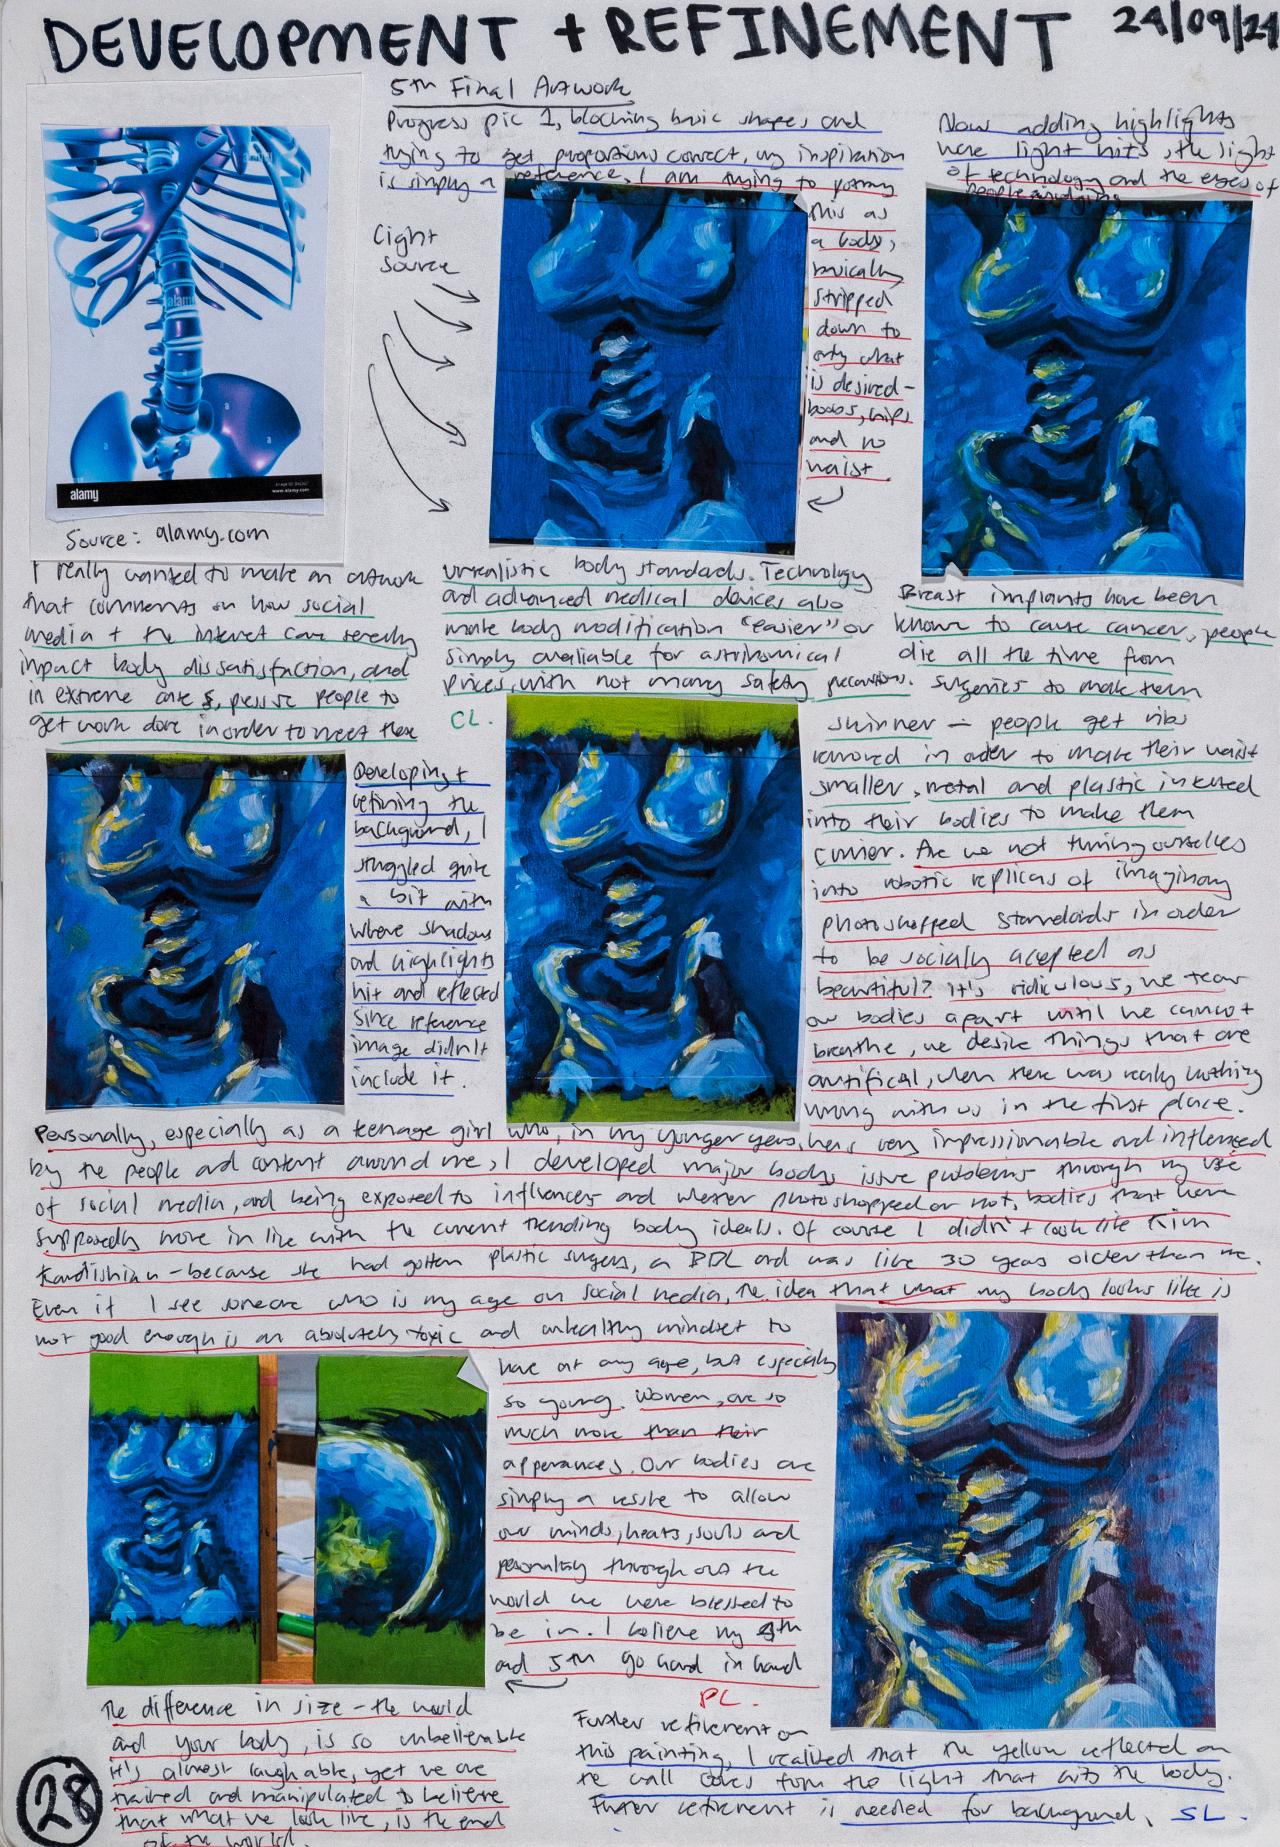 DEVELOPMENT + REFINEMENT
24/09/24
5th Final Artwork
Progress pic 1, blocking basic shapes and
trying to get proportions correct, my inspiration
is simply a reference, I am trying to portray
this as
a body,
basically
stripped
down to
only what
is desired-
boobs, hips
and no
waist.
Light
source
Now adding highlights
were light hits, the light
of technology and the eyes of
people
alamy
alamy
www.alamy.com
Source: alamy.com
I really wanted to make an artwork
that comments on how social
media + the internet can
impact body dissatisfaction, and
in extreme cases, people to
get work done in order to meet these
unrealistic body standards. Technology
and advanced medical devices also
make body modification "easier" or
simply available for astronomical
prices, with not many safety precautions.
CL.
Breast implants have been
known to cause cancer, people
die all the time from
surgeries to make them
skinner – people get ribs
removed in order to make their waist
smaller, metal and plastic inserted
into their bodies to make them
curvier. Are we not turning ourselves
into robotic replicas of imaginary
photoshopped standards in order
to be socially accepted as
beautiful? It's ridiculous, we tear
our bodies apart until we cannot
breathe, we desire things that are
artifical, when there was really nothing
wrong with us in the first place.
Developing +
refining the
background, I
struggled quite
a bit with
where shadows
and highlights
hit and reflected
since reference
image didn't
include it.
Personally, especially as a teenage girl who, in my younger years, was very impressionable and influenced
by the people and content around me, I developed major body issue problems through my use
of social media, and being exposed to influencers and whether photoshopped or not, bodies that were
supposedly more in line with the current trending body ideals. Of course I didn't look like Kim
Kardishian – because she had gotten plastic surgery, a BBL and was like 30 years older than me.
Even if I see someone who is my age on social media, the idea that what my body looks like is
not good enough is an absolutely toxic and unhealthy mindset to
have at any age, but especially
so young. Women, are so
much more than their
apperances. Our bodies are
simply a to allow
our minds, hearts, souls and
personality through out the
world we were blessed to
be in. I believe my 4th
and 5th go hand in hand
PL.
The difference in size – the world
and your body, is so unbelievable
it's almost laughable, yet we are
trained and manipulated to believe
that what we look like, is the end
of the world.
Further refinement on
this painting, I realised that the yellow reflected on
the wall comes from the light that hits the body.
Further refirement is needed for background. SL.
28